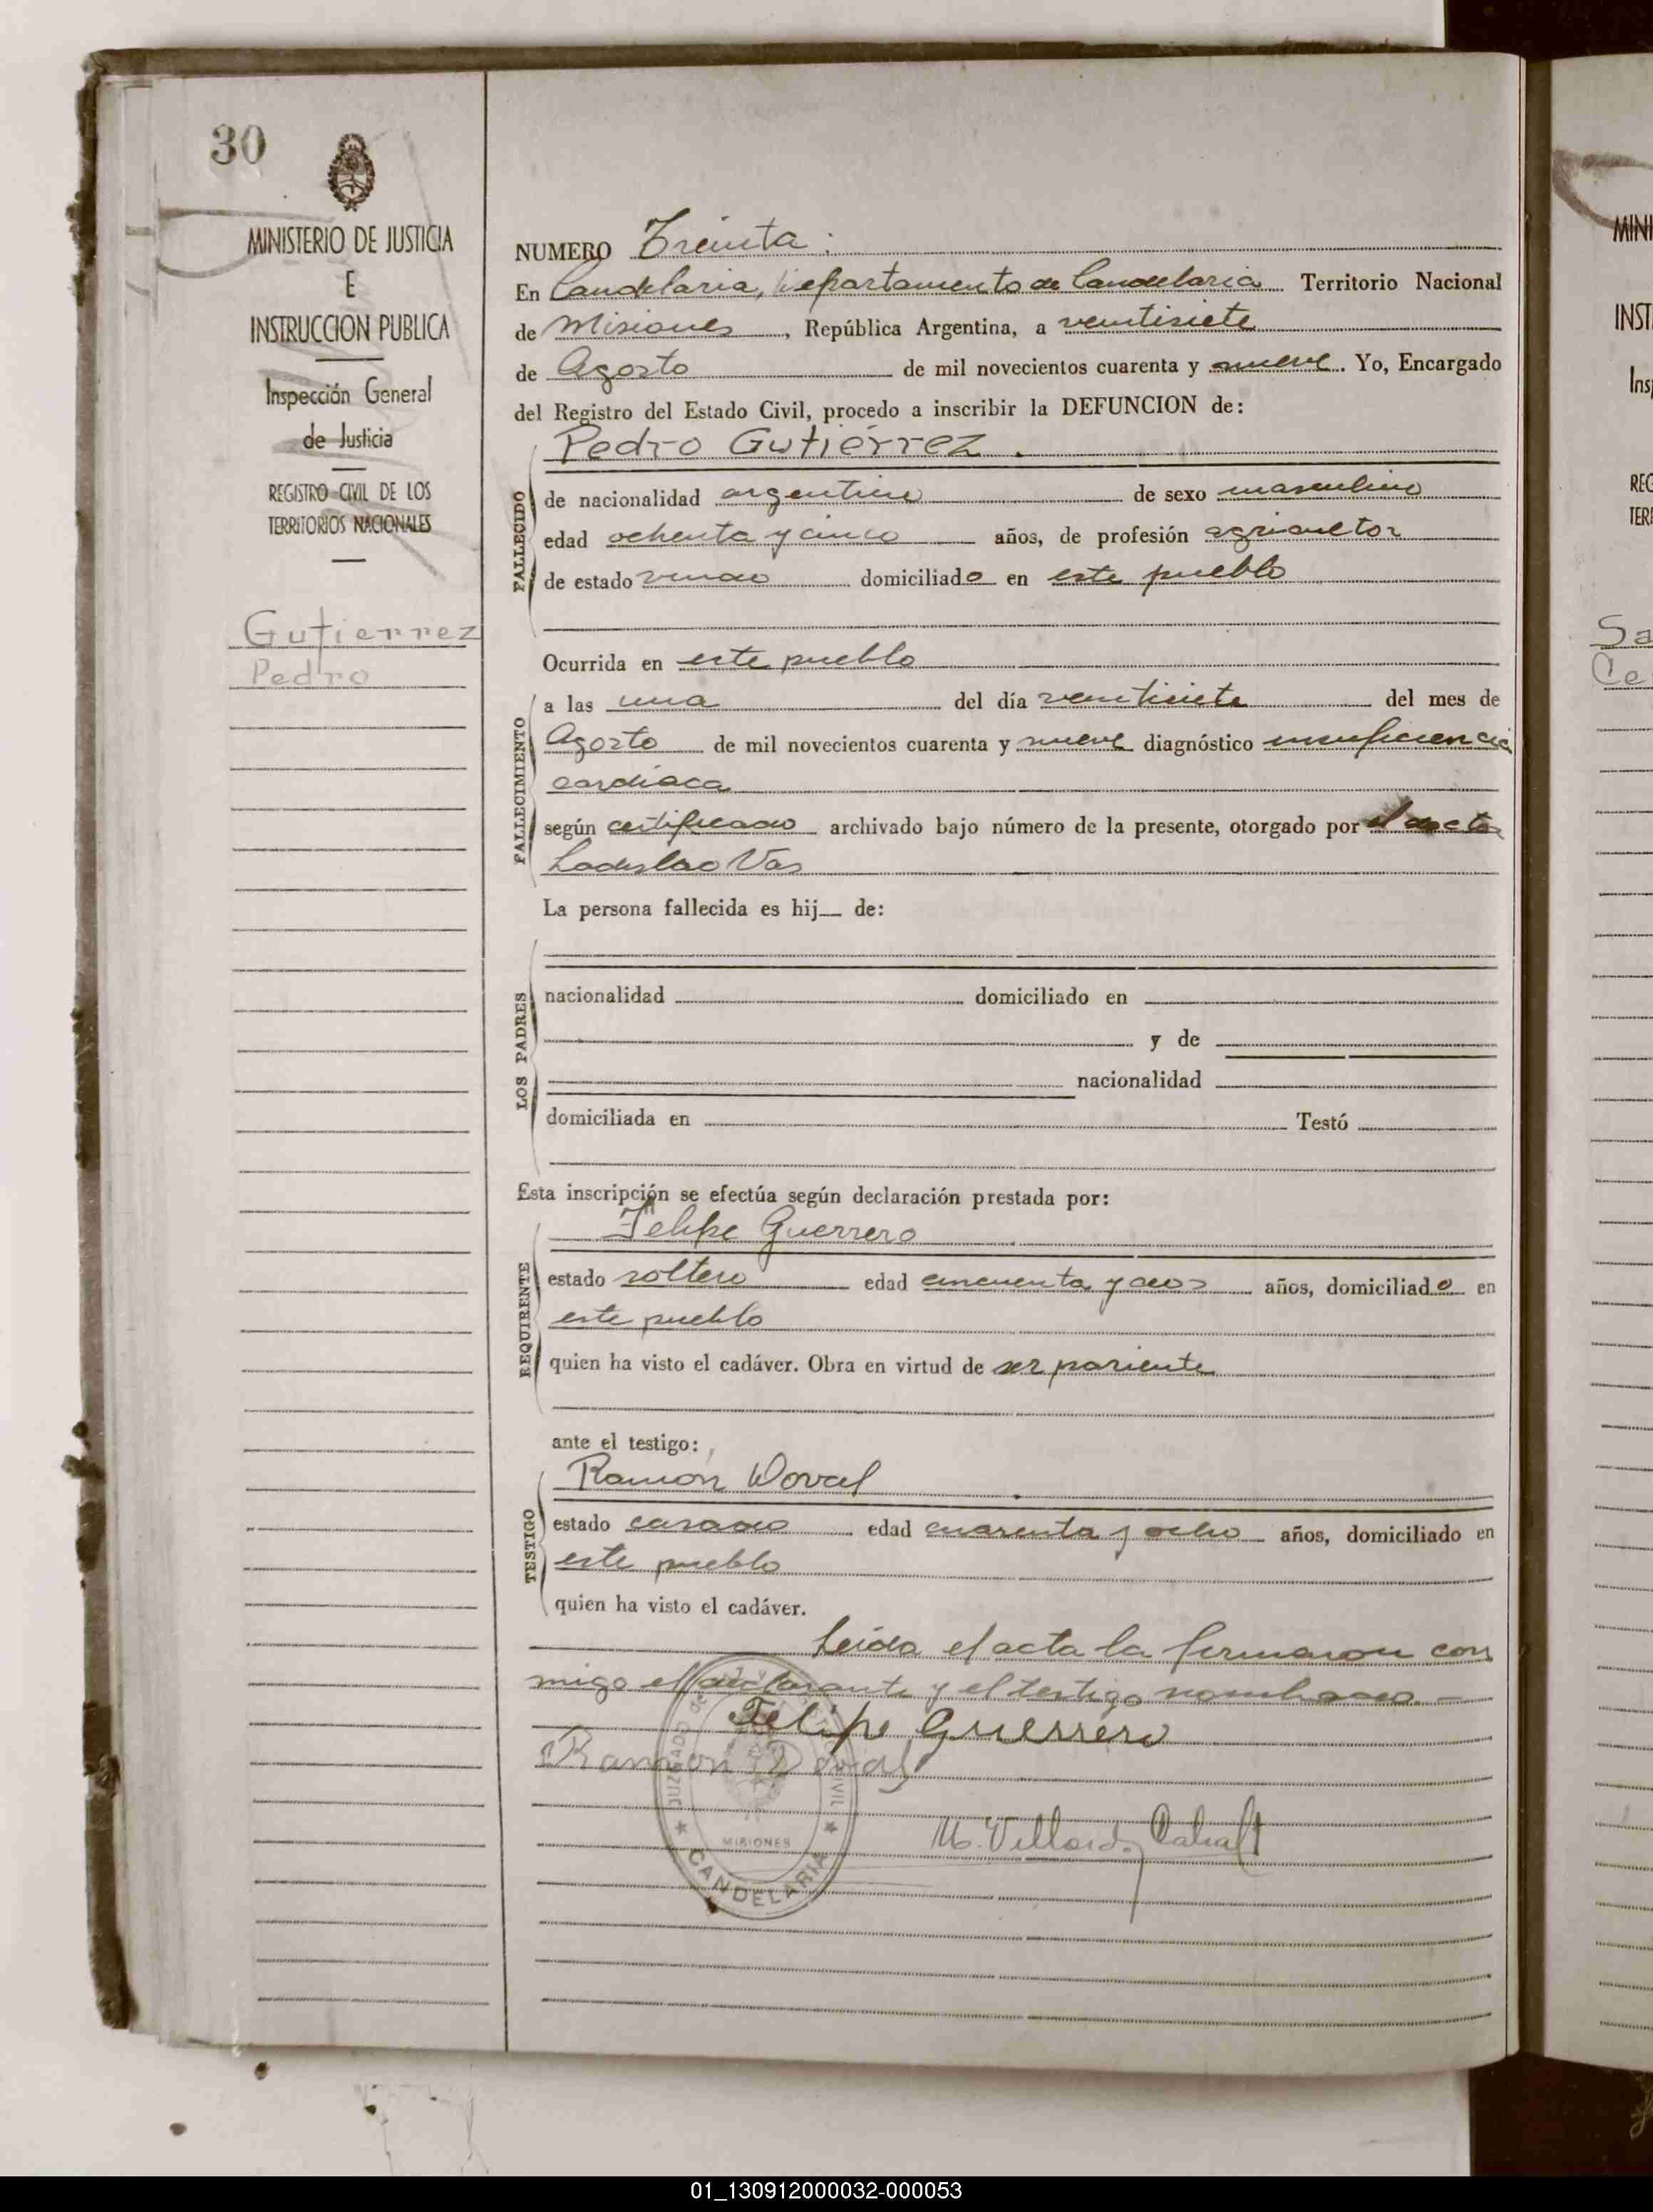 30
MINISTERIO DE JUSTICIA
E
INSTRUCCION PUBLICA
Inspección General
de Justicia
REGISTRO CIVIL DE LOS
TERRITORIOS NACIONALES
Gutierrez
Pedro
NUMERO Treinta.
En Candelaria, Departamento de Candelaria Territorio Nacional
de Misiones, República Argentina, a veintisiete
de Agosto de mil novecientos cuarenta y nueve. Yo, Encargado
del Registro del Estado Civil, procedo a inscribir la DEFUNCION de:
Pedro Gutiérrez.
FALLECIDO
de nacionalidad argentino de sexo masculino
edad ochenta y cinco años, de profesión agricultor
de estado viudo domiciliado en este pueblo
Ocurrida en este pueblo
FALLECIMIENTO
a las una del día veintisiete del mes de
Agosto de mil novecientos cuarenta y nueve diagnóstico insuficiencia
cardiaca
según certificado archivado bajo número de la presente, otorgado por el doctor
Ladislao Vas
La persona fallecida es hij de:
LOS PADRES
nacionalidad domiciliado en
y de
nacionalidad
domiciliada en Testó
Esta inscripción se efectúa según declaración prestada por:
Felipe Guerrero
REQUIRENTE
estado soltero edad cincuenta y dos años, domiciliado en
este pueblo
quien ha visto el cadáver. Obra en virtud de ser pariente
ante el testigo:
Ramón Doval
TESTIGO
estado casado edad cuarenta y ocho años, domiciliado en
este pueblo
quien ha visto el cadáver.
Leída el acta la firmaron con
migo el declarante y el testigo nombrado.-
Felipe Guerrero
Ramon Doval
JUZGADO CIVIL
MISIONES
CANDELARIA
Sa
Ce
MINI
INST
Ins
REG
TERR
01_130912000032-000053